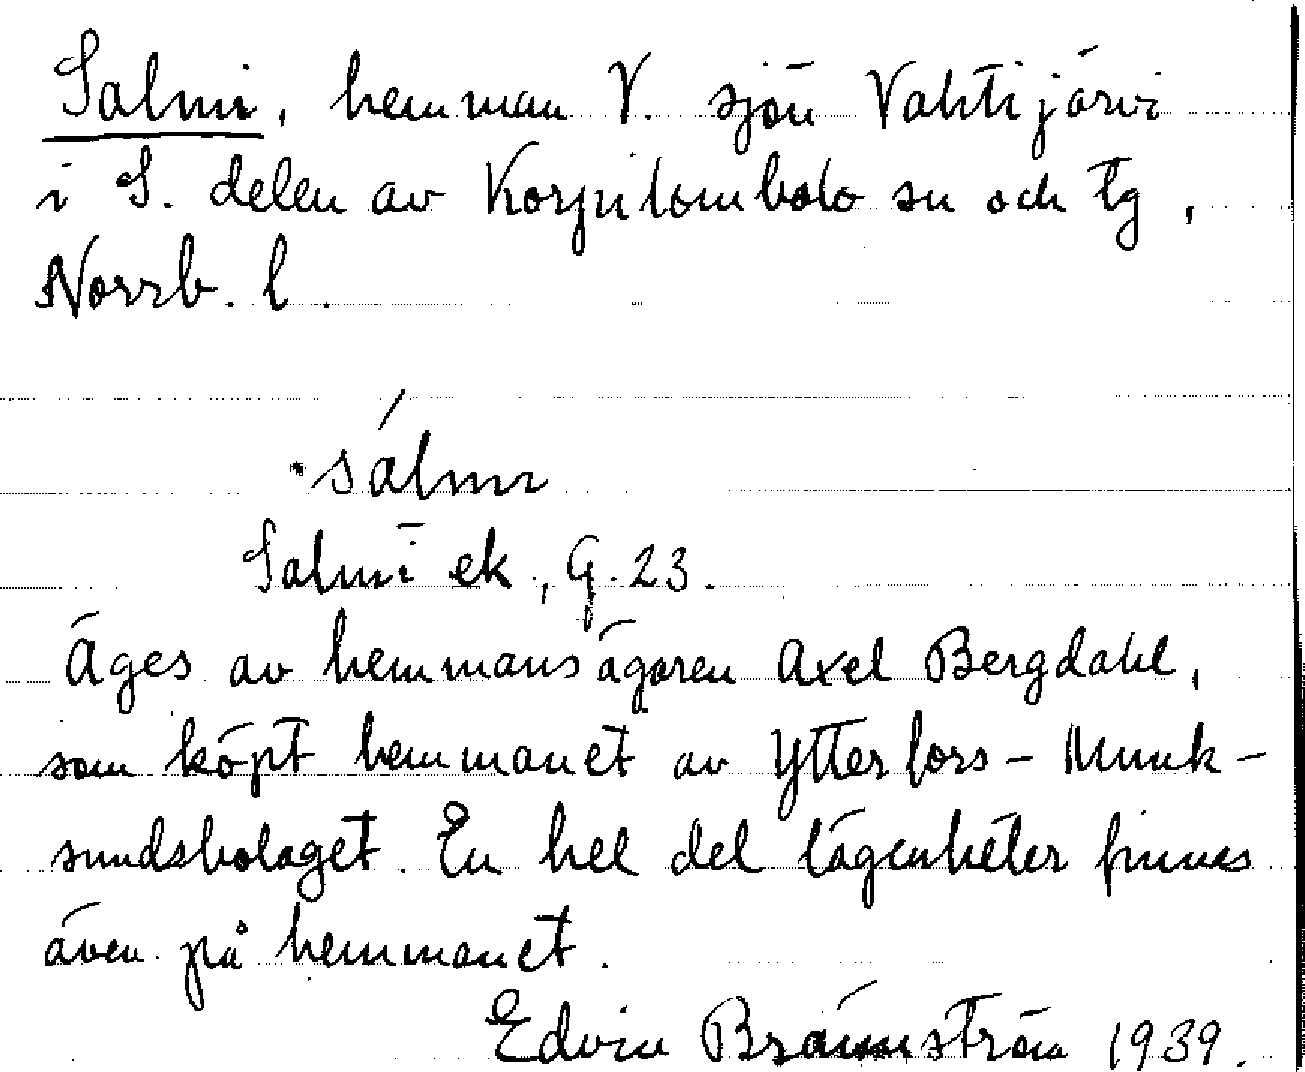 Salmi, hemman V. sjön Vahtijärvi
i S. delen av Korpilombolo sn och tg,
Norrb. l.
sálmi
Salmi ek, G. 23.
Äges av hemmansägaren Axel Bergdahl,
som köpt hemmanet av Ytterfors-Munk-
sundsbolaget. En hel del lägenheter finnes
även på hemmanet.
Edvin Brännström 1939.